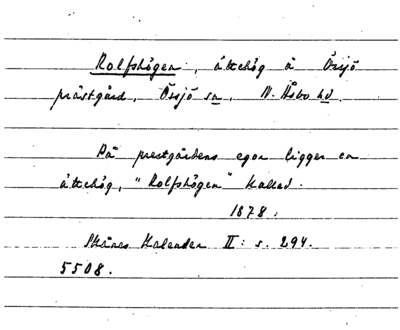 Rolfshögen, ättehög å Össjö
prästgård, Össjö sn, N. Åsbo hd.
På prestgårdens egor ligger en
ättehög, "Rolfshögen" kallad.
1878.
Skånes Kalender II: s. 294.
5508.